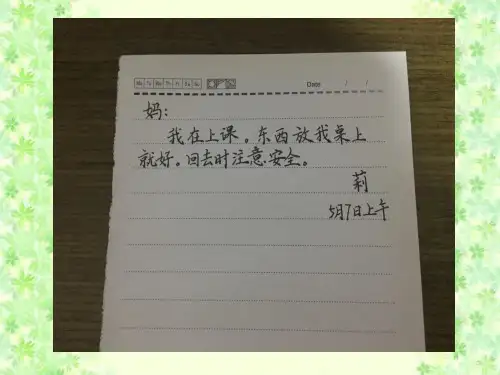 Date / /
妈：
我在上课。东西放我桌上
就好。回去时注意安全。
莉
5月7日上午